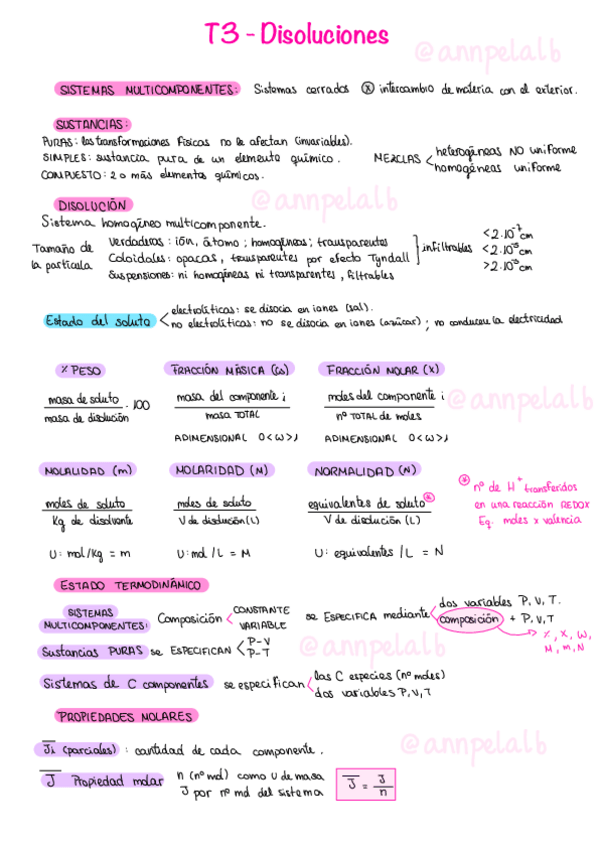 T3 - Disoluciones
@annpelalb
SISTEMAS MULTICOMPONENTES: Sistemas cerrados ⓧ intercambio de materia con el exterior.
SUSTANCIAS:
PURAS: las transformaciones físicas no le afectan (invariables).
SIMPLES: sustancia pura de un elemento químico.
COMPUESTO: 2 o más elementos químicos.
MEZCLAS < heterogéneas NO uniforme
homogéneas uniforme
DISOLUCIÓN
@annpelalb
Sistema homogéneo multicomponente.
Tamaño de la partícula
Verdaderas: ión, átomo; homogéneas; transparentes
Coloidales: opacas, transparentes por efecto Tyndall
] infiltrables
Suspensiones: ni homogéneas ni transparentes, filtrables
< 2·10⁻⁷ cm
< 2·10⁻⁵ cm
> 2·10⁻⁵ cm
Estado del soluto < electrolíticas: se disocia en iones (sal).
no electrolíticas: no se disocia en iones (azúcar); no conducen la electricidad
% PESO
masa de soluto / masa de disolución · 100
FRACCIÓN MÁSICA (ω)
masa del componente i / masa TOTAL
ADIMENSIONAL 0<ω>1
FRACCIÓN MOLAR (X)
moles del componente i / nº TOTAL de moles
ADIMENSIONAL 0<ω>1
@annpelalb
MOLALIDAD (m)
moles de soluto / Kg de disolvente
U: mol/kg = m
MOLARIDAD (M)
moles de soluto / V de disolución (L)
U: mol/L = M
NORMALIDAD (N)
equivalentes de soluto ⊛ / V de disolución (L)
U: equivalentes/L = N
⊛ nº de H⁺ transferidos
en una reacción REDOX
Eq. moles x valencia
ESTADO TERMODINÁMICO
SISTEMAS MULTICOMPONENTES: Composición < CONSTANTE
VARIABLE
se ESPECIFICA mediante < dos variables P, V, T.
composición + P, V, T
→ %, X, ω,
M, m, N
Sustancias PURAS se ESPECIFICAN < P-V
P-T
@annpelalb
Sistemas de C componentes se especifican < las C especies (nº moles)
dos variables P, V, T
PROPIEDADES MOLARES
J̅i (parciales): cantidad de cada componente.
@annpelalb
J̅ Propiedad molar n (nº mol) como U de masa
J por nº mol del sistema
J̅ = J/n